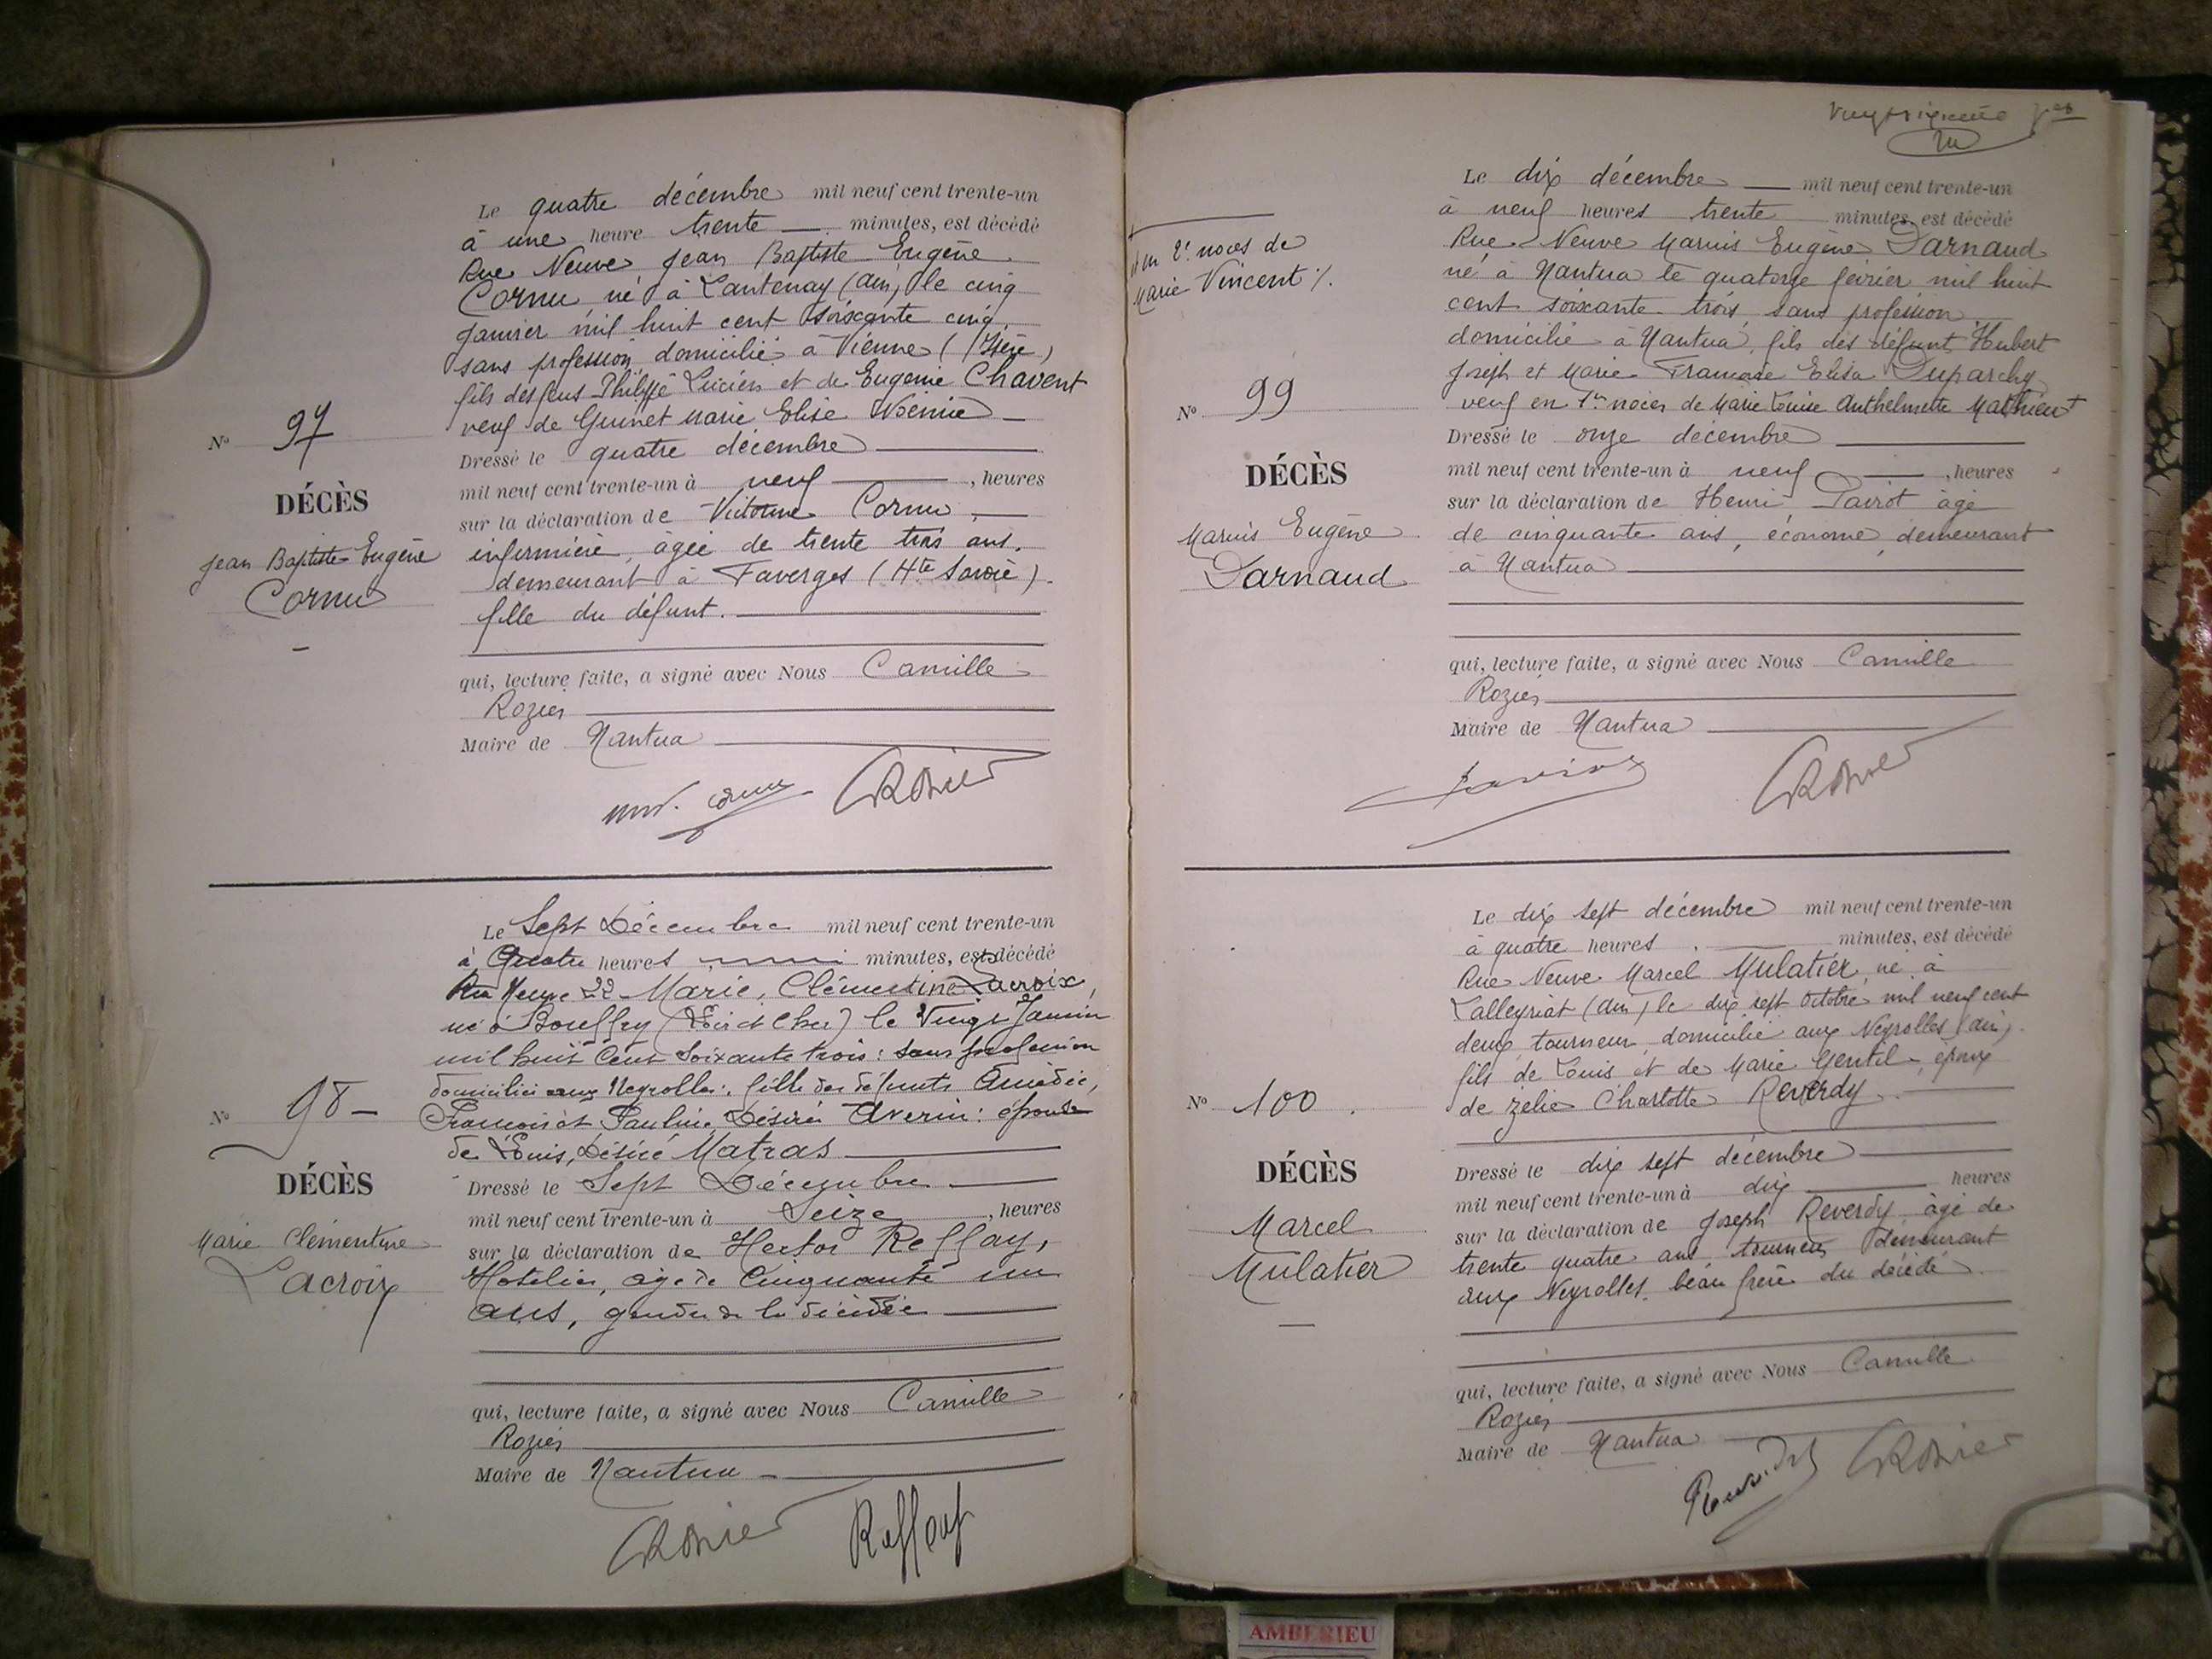 Le quatre décembre mil neuf cent trente-un
à une heure trente minutes, est décédé
Rue Neuve Jean Baptiste Eugène
Cornu, né à Lantenay (Ain) le cinq
janvier mil huit cent soixante cinq,
sans profession, domicilié à Vienne (Isère)
fils des feus Philippe Lucien et de Eugénie Chavent
veuf de Guinet Marie Elise
No 97
Dressé le quatre décembre
mil neuf cent trente-un à neuf, heures
DÉCÈS
sur la déclaration de Victorine Cornu,
Jean Baptiste Eugène
Cornu
infirmière, âgée de trente trois ans,
demeurant à Faverges (Hte Savoie).
fille du défunt.
qui, lecture faite, a signé avec Nous Camille
Rozier
Maire de Nantua
Le Sept Décembre mil neuf cent trente-un
à Quatre heures minutes, est décédé
Rue Neuve 22 Marie, Clémentine Lacroix,
né à Bouffry (Loir et Cher) le Vingt Janvier
mil huit Cent Soixante trois : sans profession
domicilié aux Neyrolles : fille des défunts Amédée,
François et Pauline Désirée Averin : épouse
de Louis, Désiré Matras
No 98
Dressé le Sept Décembre
mil neuf cent trente-un à Seize, heures
DÉCÈS
Marie Clémentine
Lacroix
sur la déclaration de Hector Reffay,
Hotelier, âgé de Cinquante un
ans, gendre de la décédée
qui, lecture faite, a signé avec Nous Camille
Rozier
Maire de Nantua
Reffay
Le dix décembre mil neuf cent trente-un
à neuf heures trente minutes, est décédé
Rue Neuve Marius Eugène Darnaud
né à Nantua le quatorze février mil huit
cent soixante trois, sans profession
domicilié à Nantua, fils des défunt Hubert
Joseph et Marie Françoise Elisa Duparchy
veuf en 1res noces de Marie Louise Anthelmette Mathieu +
+ en 2e noces de
Marie Vincent ./.
No 99
Dressé le onze décembre
mil neuf cent trente-un à neuf, heures
DÉCÈS
Marius Eugène
Darnaud
sur la déclaration de Henri Pairot âgé
de cinquante ans, économe, demeurant
à Nantua
qui, lecture faite, a signé avec Nous Camille
Rozier
Maire de Nantua
Le dix sept décembre mil neuf cent trente-un
à quatre heures minutes, est décédé
Rue Neuve Marcel Mulatier, né à
Lalleyriat (Ain) le dix sept octobre mil neuf cent
deux, tourneur, domicilié aux Neyrolles (Ain).
fils de Louis et de Marie Gentil, époux
de Zélie Charlotte Reverdy
No 100
Dressé le dix sept décembre
mil neuf cent trente-un à dix heures
DÉCÈS
Marcel
Mulatier
sur la déclaration de Joseph Reverdy âgé de
trente quatre ans tourneur demeurant
aux Neyrolles, beau frère du décédé.
qui, lecture faite, a signé avec Nous Camille
Rozier
Maire de Nantua
AMBERIEU